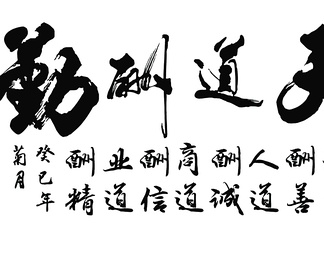 道酬勤
酬善
人道
酬誠
商道
酬信
业道
酬精
癸巳年
菊月